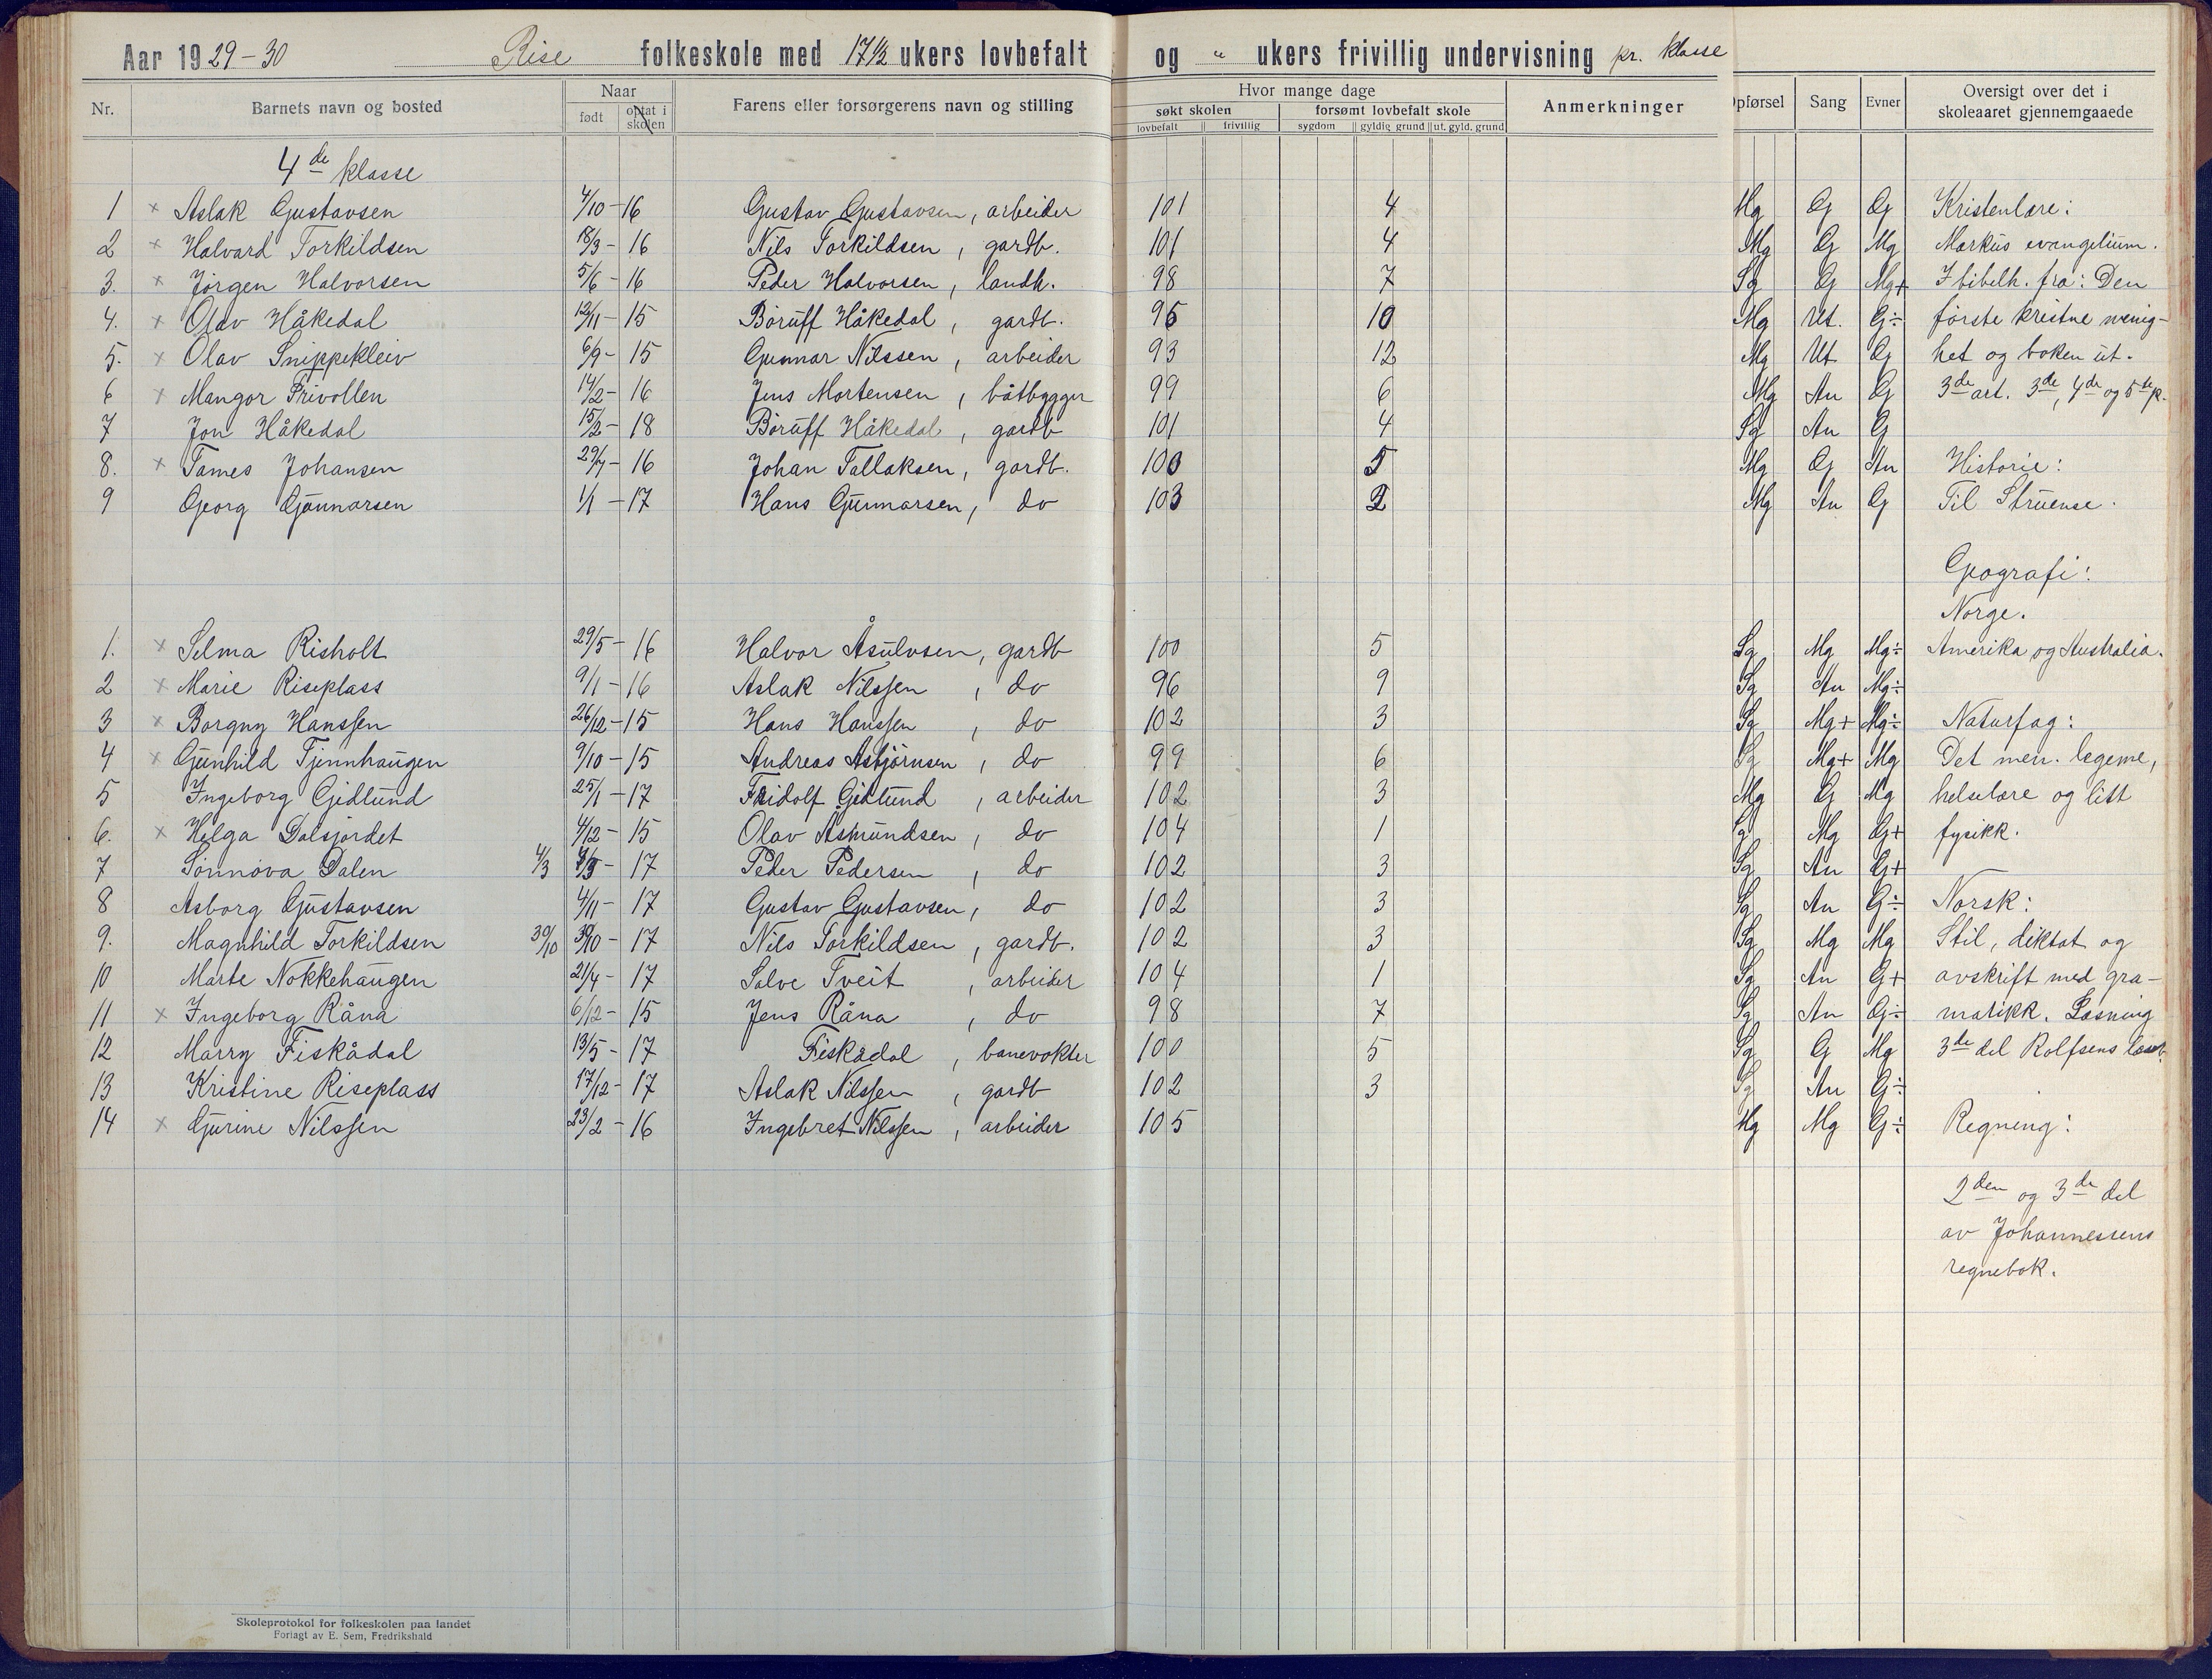 Aar 1929-30 Rise folkeskole med 17½ ukers lovbefalt og " ukers frivillig undervisning pr. klasse
Nr. Barnets navn og bosted Naar født optat i skolen Farens eller forsørgerens navn og stilling Hvor mange dage søkt skolen lovbefalt frivillig forsømt lovbefalt skole sygdom gyldig grund ut. gyld. grund Anmerkninger pførsel Sang Evner Oversigt over det i skoleaaret gjennemgaaede
4de klasse
1 × Aslak Gustavsen 4/10-16 Gustav Gustavsen, arbeider 101 4 Mg G G Kristenlære:
2 × Halvard Torkildsen 18/3-16 Nils Torkildsen, gardb. 101 4 Mg G Mg Markus evangelium.
3. × Jörgen Halvorsen 5/6-16 Peder Halvorsen, landh. 98 7 Sg G Mg+ I bibelh. fra: Den
4. × Olav Håkedal 12/11-15 Böruff Håkedal, gardb. 95 10 Mg Ut. G÷ förste kristne menig-
5. × Olav Snippekleiv 6/9-15 Gunnar Nilssen, arbeider 93 12 Mg Ut G het og boken ut.
6 × Mangor Frivollen 14/2-16 Jens Mortensen, båtbygger 99 6 Mg An G 3de art. 3de, 4de og 5te p.
7 Jon Håkedal 15/2-18 Böruff Håkedal, gardb 101 4 Sg An G
8. × Tames Johansen 29/7-16 Johan Tallaksen, gardb. 100 5 Mg G An Historie:
9 Georg Gunnarsen 1/1-17 Hans Gunnarsen, do 103 2 Mg An G Til Struense.
Geografi:
Norge.
1. × Selma Risholt 29/5-16 Halvor Åsulvsen, gardb 100 5 Sg Mg Mg÷ Amerika og Australia.
2 × Marie Riseplass 9/1-16 Aslak Nilssen, do 96 9 Sg An Mg÷
3 × Borgny Hanssen 26/12-15 Hans Hanssen, do 102 3 Sg Mg+ Mg÷ Naturfag:
4 × Gunhild Tjennhaugen 9/10-15 Andreas Asbjörnsen, do 99 6 Sg Mg+ Mg Det men. legeme,
5 Ingeborg Gidlund 25/1-17 Fridolf Gidlund, arbeider 102 3 Mg G Mg helselære og litt
6. × Helga Dalsjordet 4/12-15 Olav Asmundsen, do 104 1 Sg Mg G+ fysikk.
7 Sönnöva Dalen 4/3 4/3-17 Peder Pedersen, do 102 3 Sg An G+
8 Asborg Gustavsen 4/11-17 Gustav Gustavsen, do 102 3 Sg An G÷ Norsk:
9. Magnhild Torkildsen 30/10 30/10-17 Nils Torkildsen, gardb. 102 3 Sg Mg Mg Stil, diktat og
10 Marte Nokkehaugen 21/4-17 Salve Tveit, arbeider 104 1 Sg An G+ avskrift med gra-
11 × Ingeborg Råna 6/12-15 Jens Råna, do 98 7 Sg An G÷ matikk. Læsning
12 Marry Fiskådal 13/5-17 Fiskådal, banevokter 100 5 Sg G Mg 3de del Rolfsens læseb.
13 Kristine Riseplass 17/12-17 Aslak Nilssen, gardb 102 3 Sg An G÷
14 × Gurine Nilssen 23/2-16 Ingebret Nilssen, arbeider 105 Mg Mg G÷ Regning:
2den og 3de del
av Johannessens
regnebok.
Skoleprotokol for folkeskolen paa landet
Forlagt av E. Sem, Fredrikshald